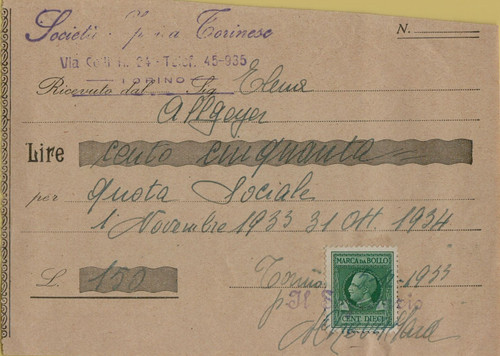 Società Torinese
N.
Via 24 - Telef. 45-935
TORINO
Ricevuto dal Sig Elena
Allgoyer
Lire cento cinquanta =
per quota Sociale
1 Novembre 1933 31 Ott. 1934
MARCA DA BOLLO
L. 150
Torino 1933
p. Il
CENT. DIECI